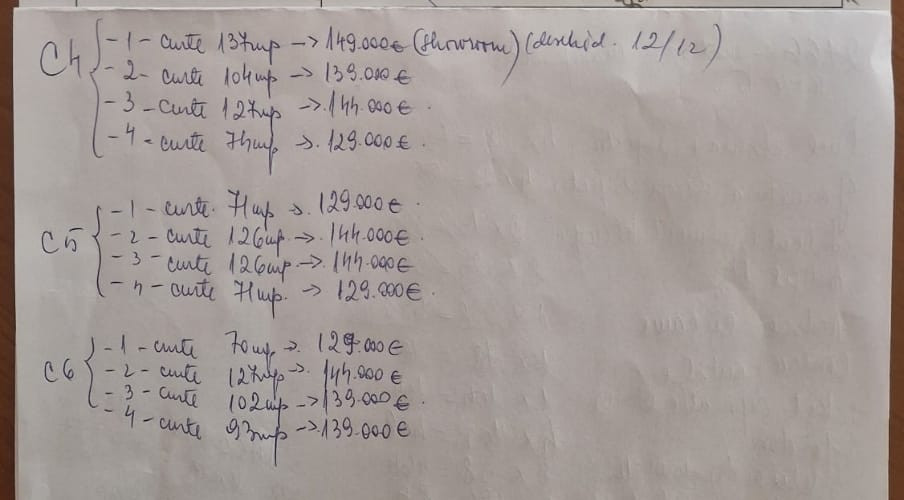 C4
- 1 - curte 137mp -> 149.000€ (showroom) (deschid. 12/12)
- 2 - curte 104mp -> 139.000€
- 3 - curte 127mp -> 144.000€.
- 4 - curte 74mp -> 129.000€.
C5
- 1 - curte. 71mp ->. 129.000€.
- 2 - curte 126mp. ->. 144.000€.
- 3 - curte 126mp -> 144.000€
- 4 - curte 71mp. -> 129.000€.
C6
- 1 - curte 70mp ->. 129.000€
- 2 - curte 127mp ->. 144.000€
- 3 - curte 102mp -> 139.000€.
- 4 - curte 93mp -> 139.000€